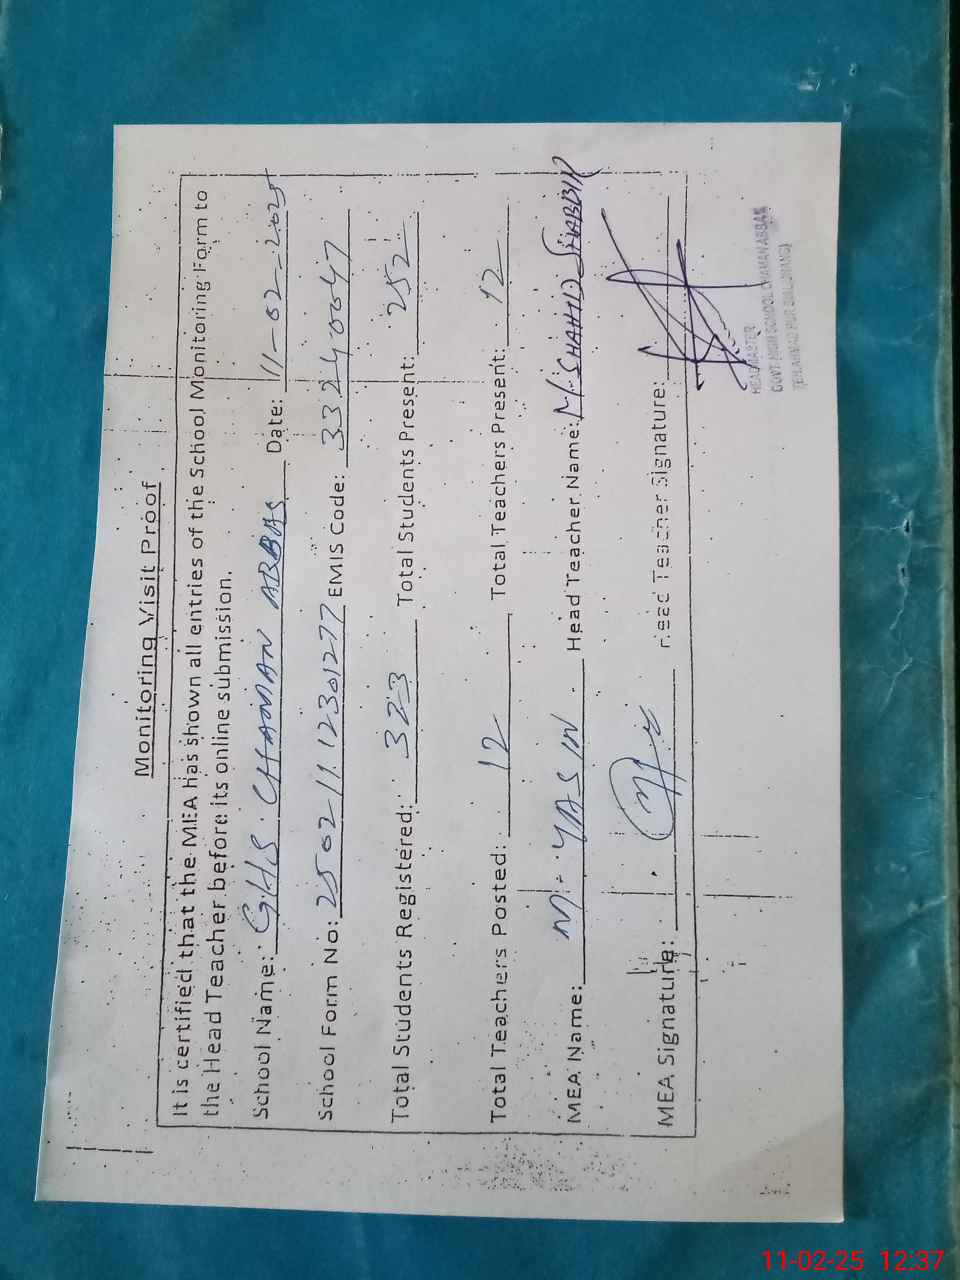 Monitoring Visit Proof
It is certified that the MEA has shown all entries of the School Monitoring Form to
the Head Teacher before its online submission.
School Name: GHS. CHAMAN ABBAS Date: 11-02-2025
School Form No: 25021112301277 EMIS Code: 33240047
Total Students Registered: 323 Total Students Present: 252
Total Teachers Posted: 12 Total Teachers Present: 12
MEA Name: M. YASIN Head Teacher Name: M. SHAHID SHABBIR
MEA Signature: Head Teacher Signature:
HEADMASTER
GOVT. HIGH SCHOOL CHAMAN ABBAS
11-02-25 12:37